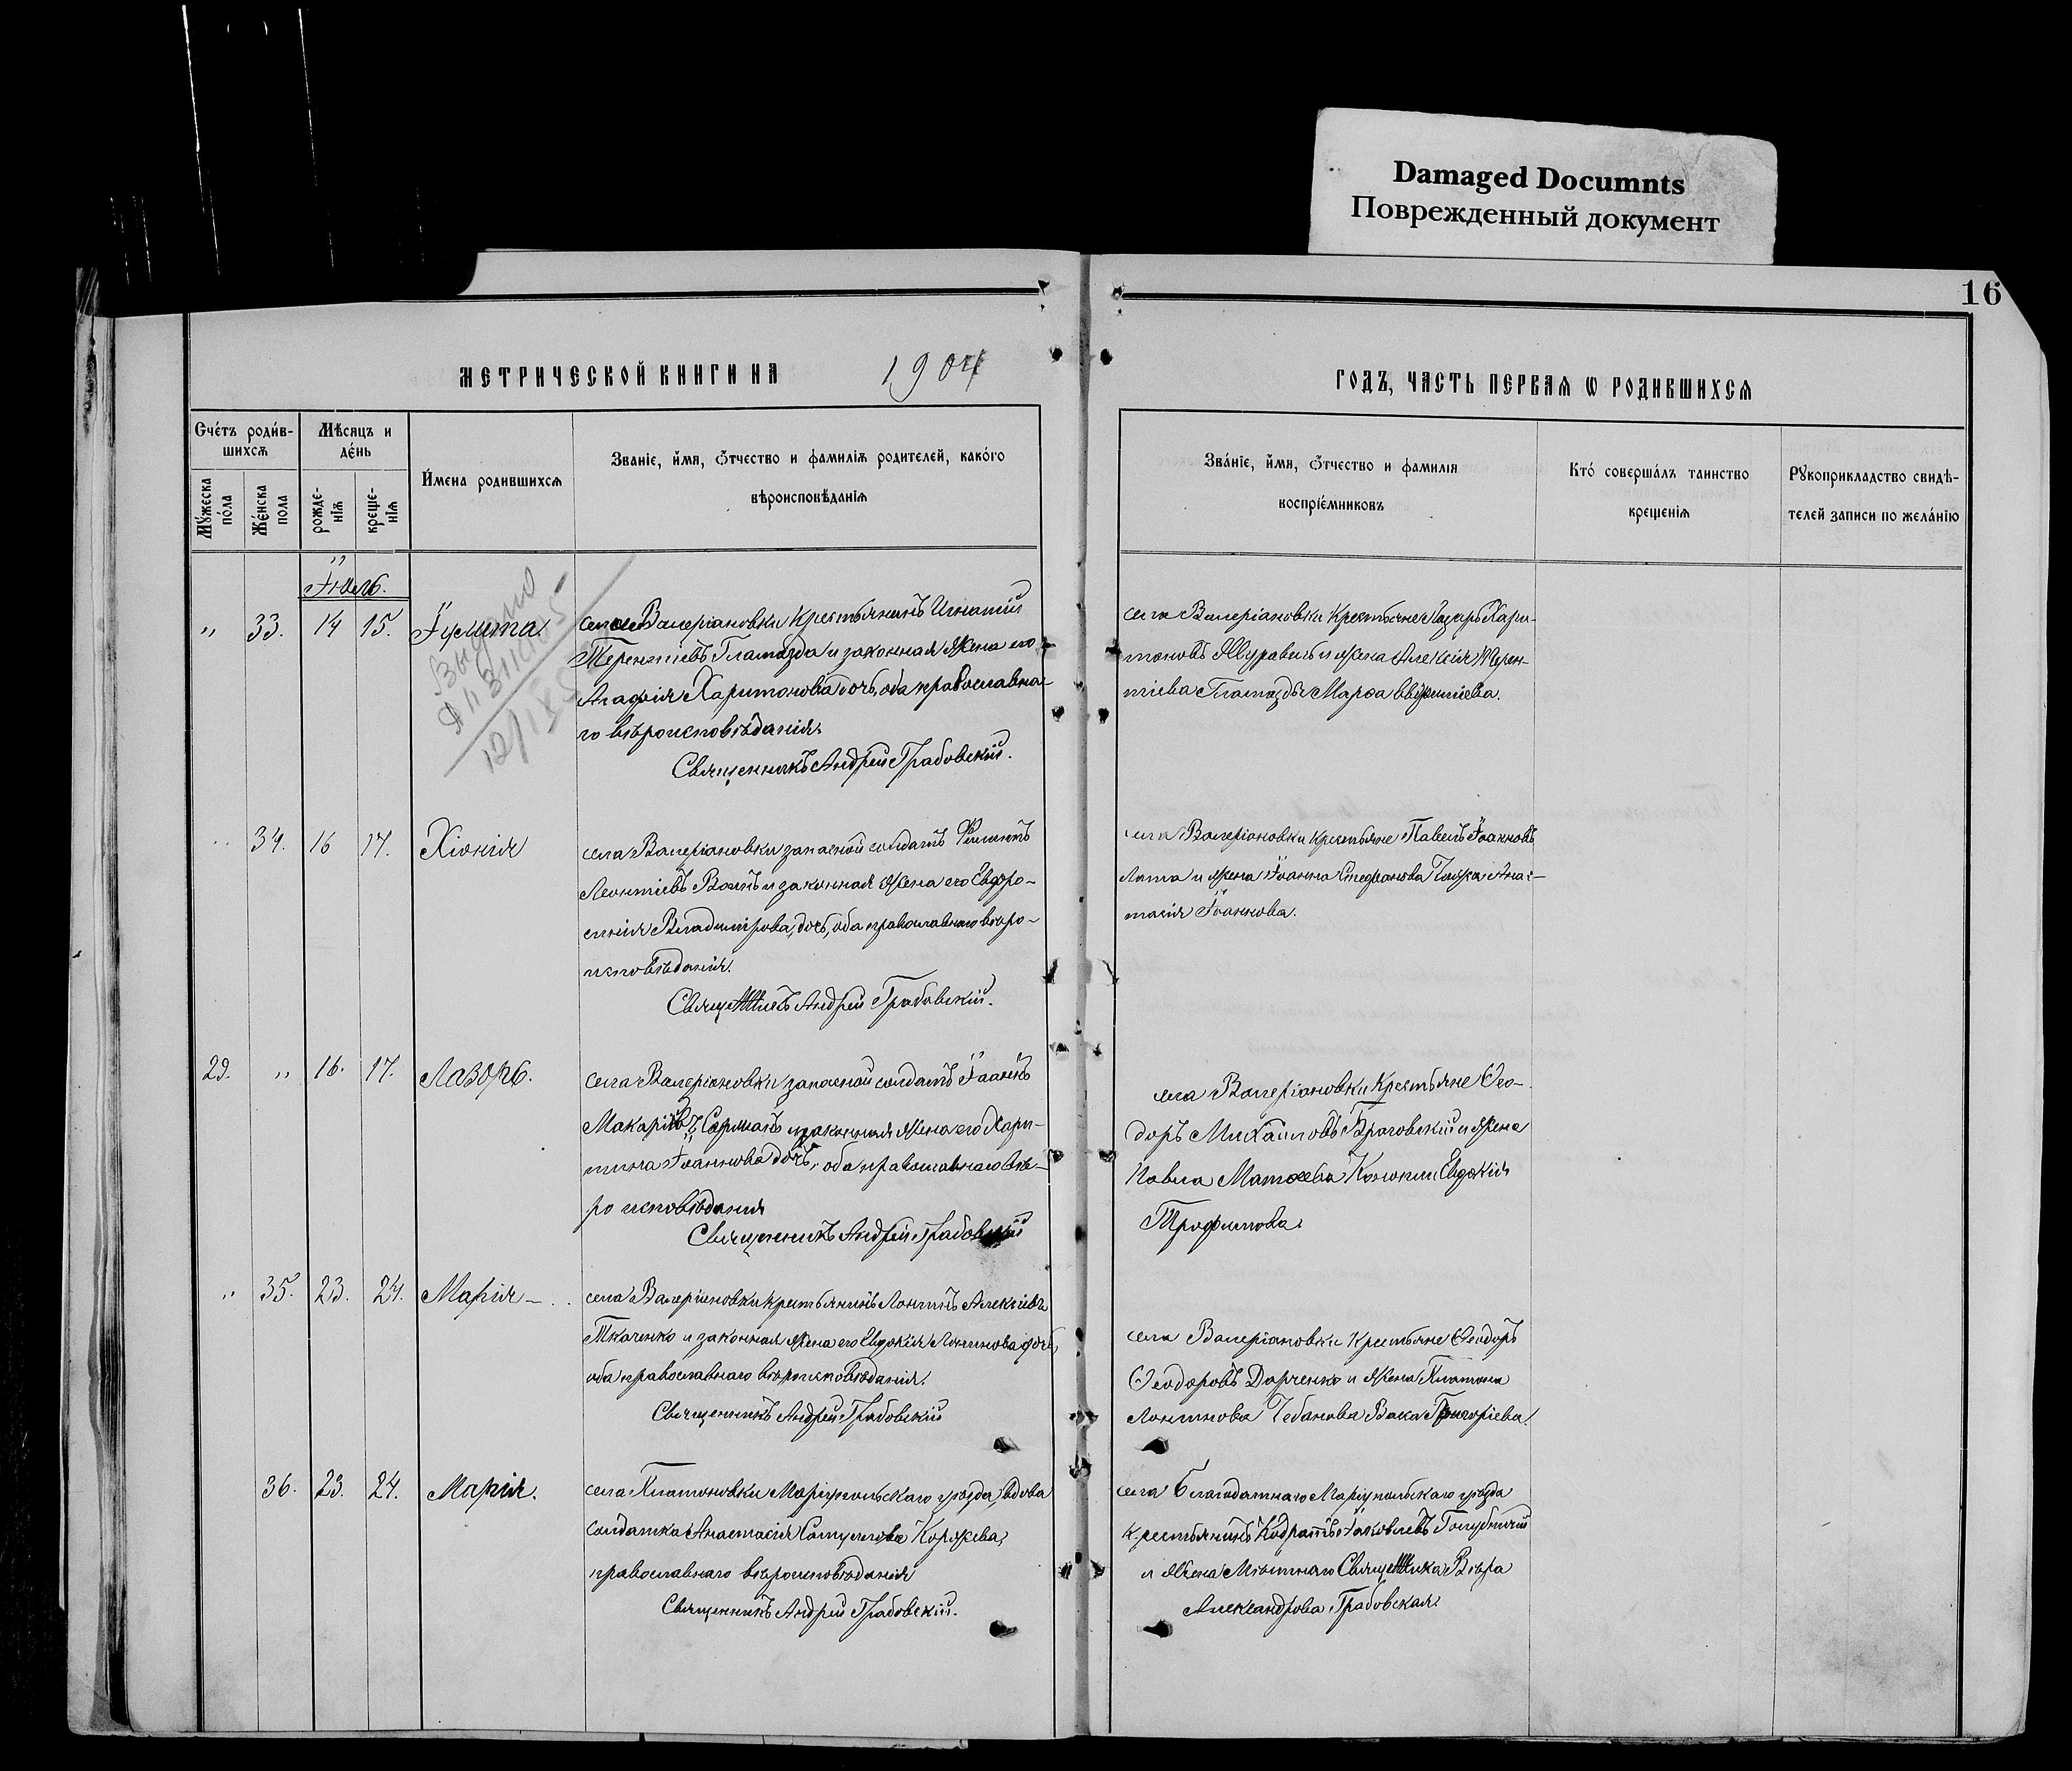 Damaged Documnts
Поврежденный документ
16
МЕТРИЧЕСКОЙ КНИГИ НА 1904
ГОДЪ, ЧАСТЬ ПЕРВАЯ Ѡ РОДИВШИХСЯ
Счéтъ роди́в-
шихсѧ
Мѣ́сяцъ и
дéнь
Мꙋ́жеска
по́ла
Жéнска
пола
рожде-
нїѧ
креще-
нїѧ
И҆́мена родившихсѧ
Званїе, и҆́мя, ѻ҆́тчество и фамилїѧ родителей, како́гѡ
вѣроисповѣ́данїѧ
Зва́нїе, и҆́мя, ѻ҆́тчество и фамилїя
воспрїе́мниковъ
Кто́ соверша́лъ таинство
крещенїѧ
Рꙋкоприкладство свидѣ́-
телей записи по жела́нїю
Іюль.
" 33. 14 15. Іулита
села Валеріановки крестьянинъ Игнатій
Терентіевъ Гламазда и законная жена его
Агафія Харитонова дочь, оба православна-
го вѣроисповѣданія.
Священникъ Андрей Грабовскій.
села Валеріановки крестьяне Лазарь Хари-
тоновъ Журавель и жена Алексія Терен-
тіева Гламазды Марѳа
Выдано
" 34. 16 17. Хіонія
села Валеріановки запасной солдатъ Филиппъ
Леонтіевъ и законная жена его Евфро-
синія Владимірова, дочь, оба православнаго вѣро-
исповѣданія.
Священникъ Андрей Грабовскій.
села Валеріановки крестьяне Павелъ Іоанновъ
Лата и жена Іоанна Стефанова Анас-
тасія Іоаннова.
29. " 16. 17. Лазорь.
села Валеріановки запасной солдатъ Іоаннъ
Макаріевъ и законная жена его Хари-
тина Іоаннова дочь, оба православнаго вѣ-
роисповѣданія
Священникъ Андрей Грабовскій
села Валеріановки крестьяне Ѳео-
доръ Михаиловъ Враговскій и жена
Павла Матѳеева Евдокія
Трофимова.
" 35. 23. 24. Марія
села Валеріановки крестьянинъ Логгинъ Алексіевъ
Ткаченко и законная жена его Евдокія Логгинова дочь,
оба православнаго вѣроисповѣданія.
Священникъ Андрей Грабовскій
села Валеріановки крестьяне Ѳеодоръ
Ѳеодоровъ Дорченко и жена Платона
Логгинова Чебанова Васса Григоріева.
36. 23. 24. Марія.
села Платоновки Маріупольскаго уѣзда, вдова
солдатка Анастасія Самуилова Коржева,
православнаго вѣроисповѣданія
Священникъ Андрей Грабовскій.
села Благодатнаго Маріупольскаго уѣзда
крестьянинъ Кодратъ Іаковлевъ Голубничій
и жена мѣстнаго Священника Вѣра
Александрова Грабовская.